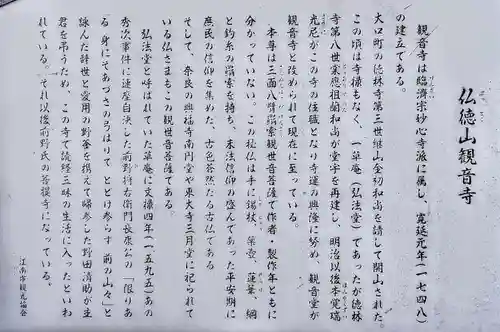 仏徳山観音寺
観音寺は臨済宗妙心寺派に属し、寛延元年(一七四八)
の建立である。
大口町の徳林寺第三世継山金幼和尚を請して開山された。
この頃は寺様もなく、一草庵(弘法堂)であったが徳林
寺第八世業應祖蘭和尚が堂宇を再建し、明治以後本覚瑞
光尼がこの寺の住職となり寺運の興隆に努め、観音堂が
観音寺と改められて現在に至っている。
本尊は三面八臂羂索観世音菩薩で作者・製作年ともに
分かっていない。この秘仏は手に錫杖、藥壺、蓮葉、綱
と釣糸の羂索を持ち、末法信仰の盛んであった平安期に
庶民の信仰を集めた、古色蒼然たる古仏である
そして、奈良の興福寺南円堂や東大寺三月堂に祀られて
いる仏さまもこの観世音菩薩である。
弘法堂と呼ばれていた草庵に文禄四年(一五九五)あの
秀次事件に連座自決した前野将右衛門長康公の「限りあ
る 身にそあづさの弓はりて とどけ参らす 前の山々」と
詠んだ辞世と愛用の野釜を携えて帰参した野田清助が主
君を弔うため、この寺で読経三昧の生活に入ったといわ
れている。それ以後前野氏の菩提寺になっている。
江南市観光協会